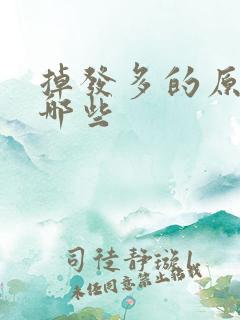 掉發多的原
哪些
司徒靜璇
未经同意禁止转载